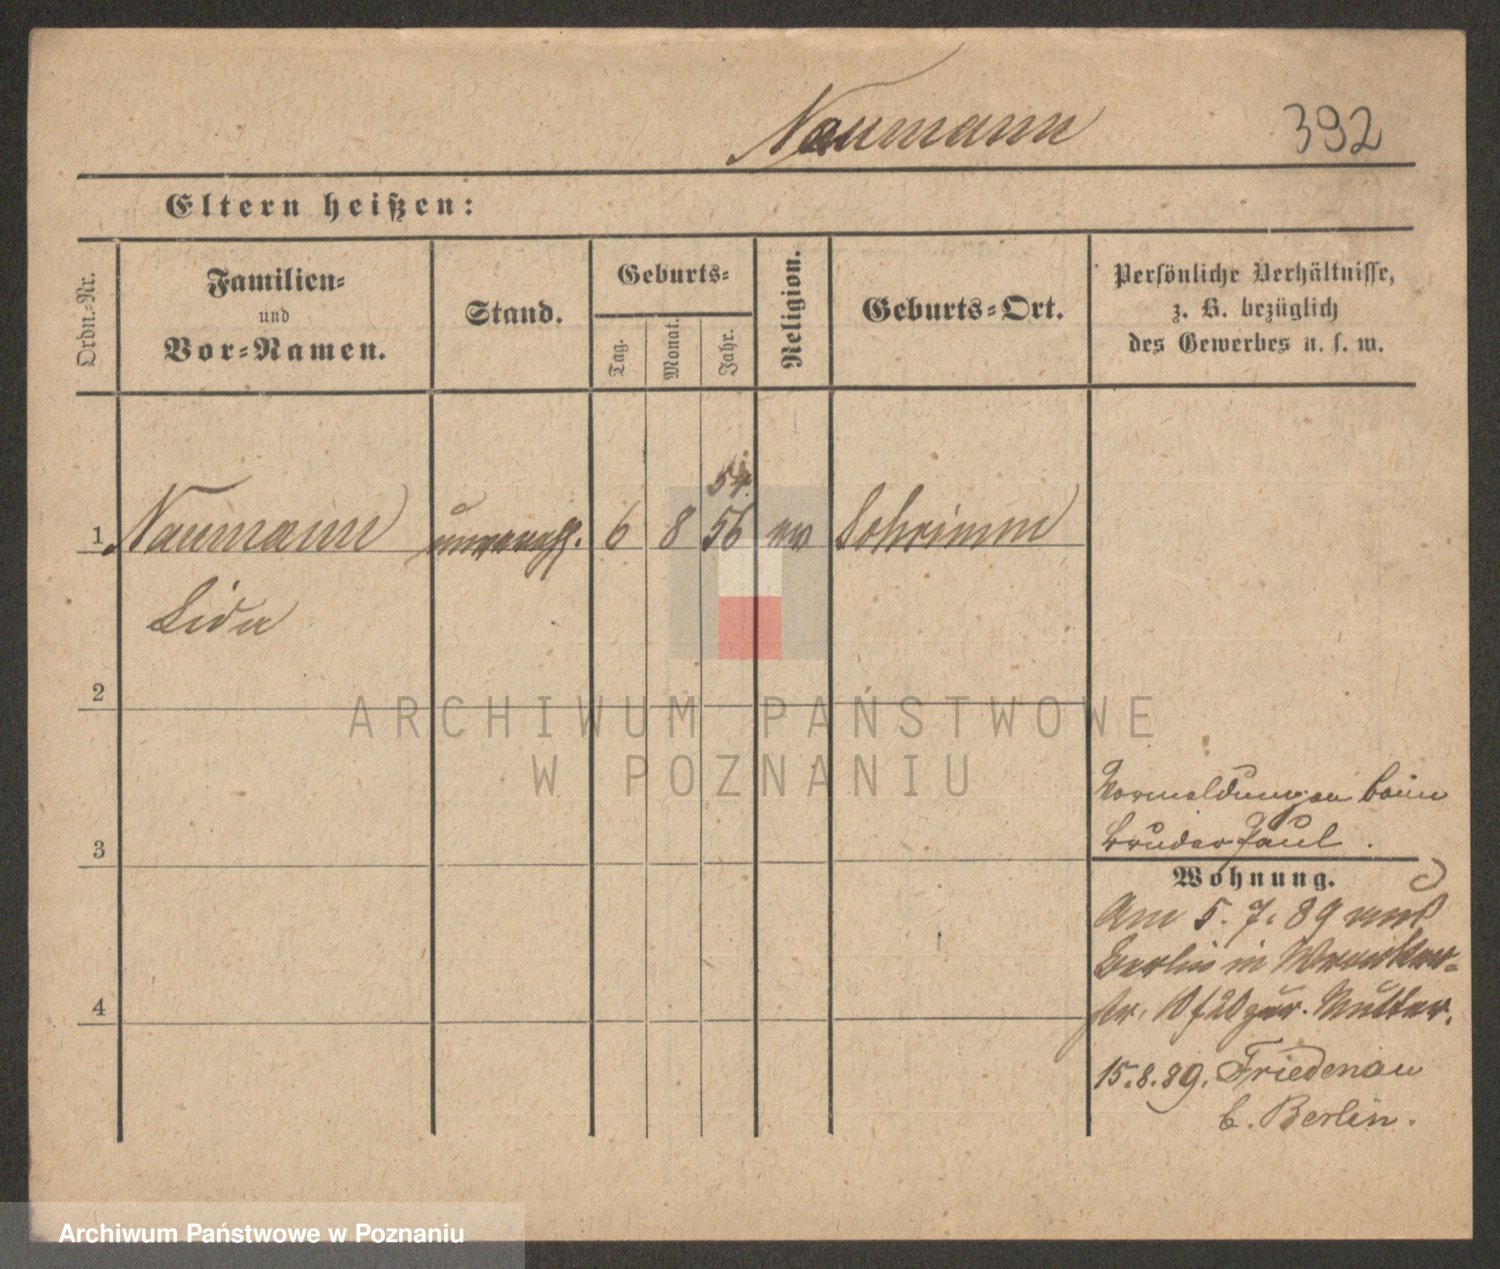 Naumann 392
Eltern heißen:
Ordn.-Nr.
Familien-
und
Vor-Namen.
Stand.
Geburts-
Tag.
Monat.
Jahr.
Religion.
Geburts-Ort.
Persönliche Verhältnisse,
z. B. bezüglich
des Gewerbes u. s. w.
54.
1 Naumann unvereh. 6 8 56 ev Schrimm
Lida
2
3
4
Vormeldungen beim
Bruder Paul.
Wohnung.
Am 5. 7. 89 von
Berlin in Wronker-
str. zur Mutter.
15.8.89. Friedenau
b. Berlin.
ARCHIWUM PAŃSTWOWE
W POZNANIU
Archiwum Państwowe w Poznaniu